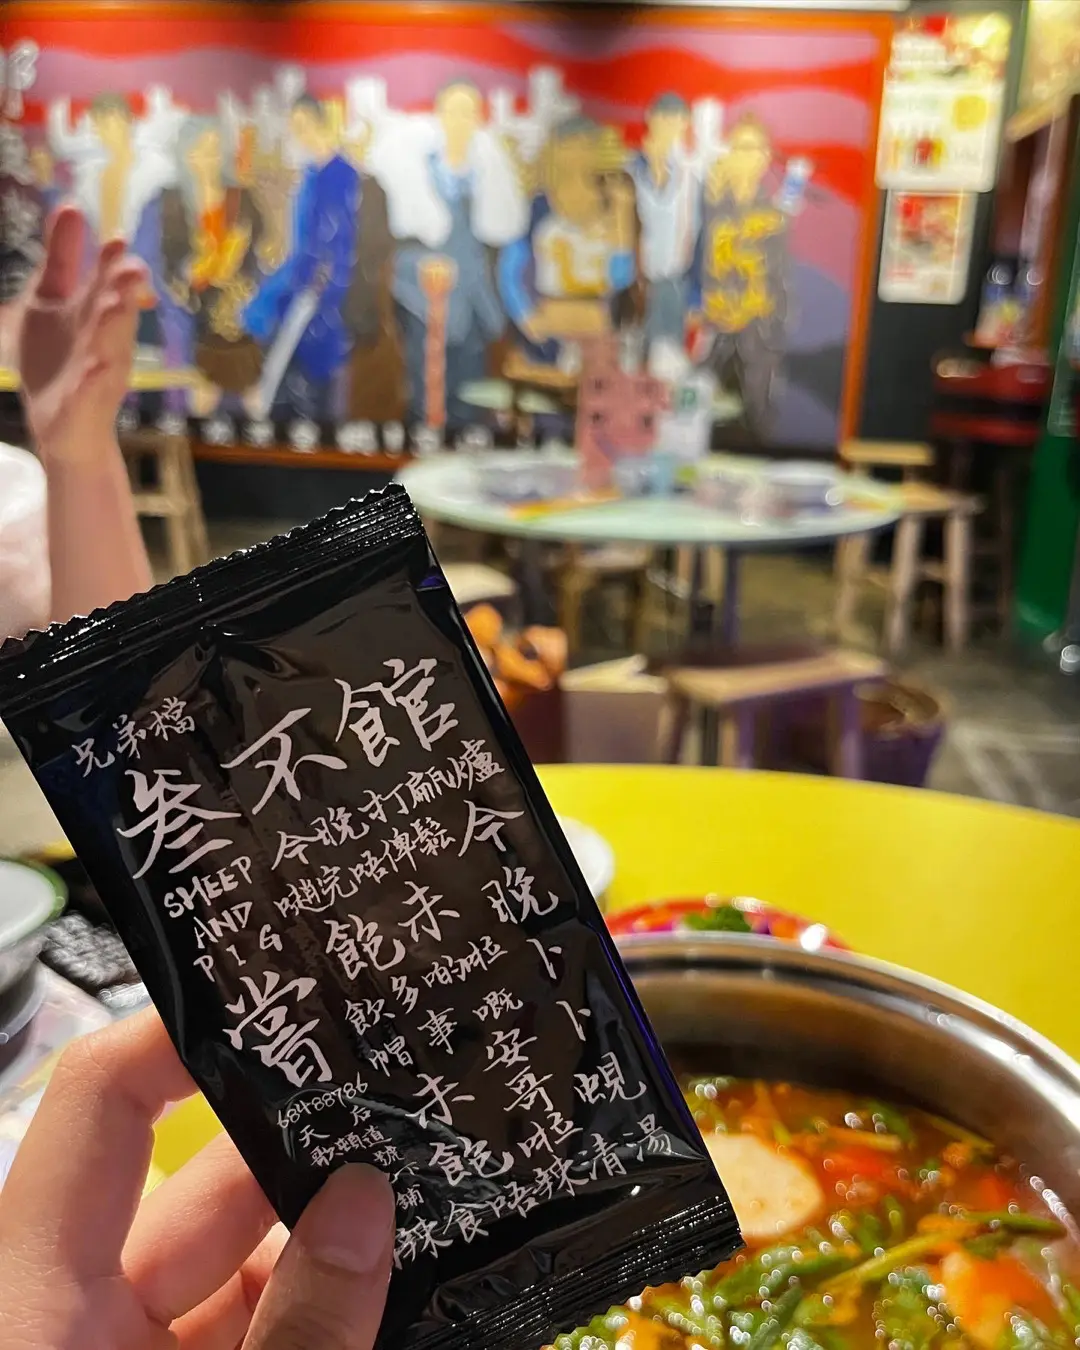 兄弟檔
叁不館
SHEEP
AND
PIG
今晚打甂爐
完唔俾鬆
今晚卜卜蜆
嘗
飽未
飲多啲啦
帽事嘅
未飽
安哥啦
68488786
天后
歌頓道
號
舖
辣食唔辣清湯